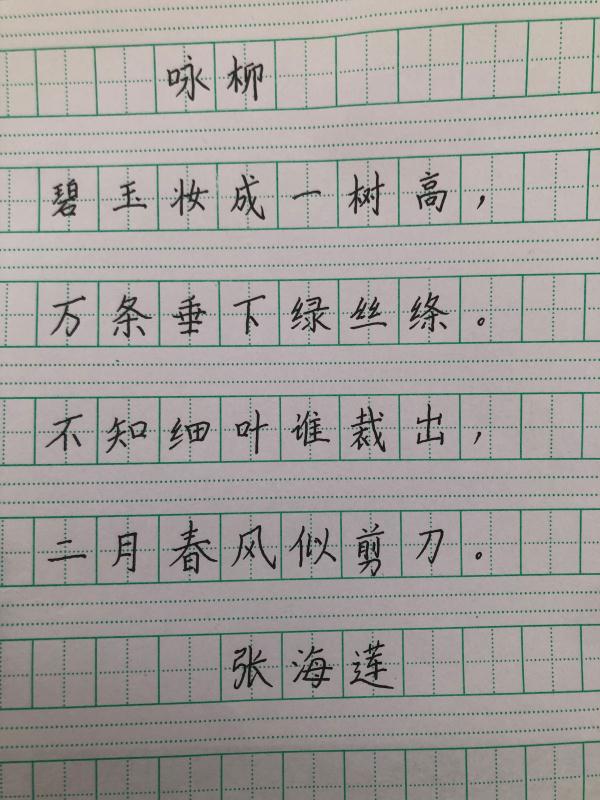 咏柳
碧玉妆成一树高，
万条垂下绿丝绦。
不知细叶谁裁出，
二月春风似剪刀。
张海莲